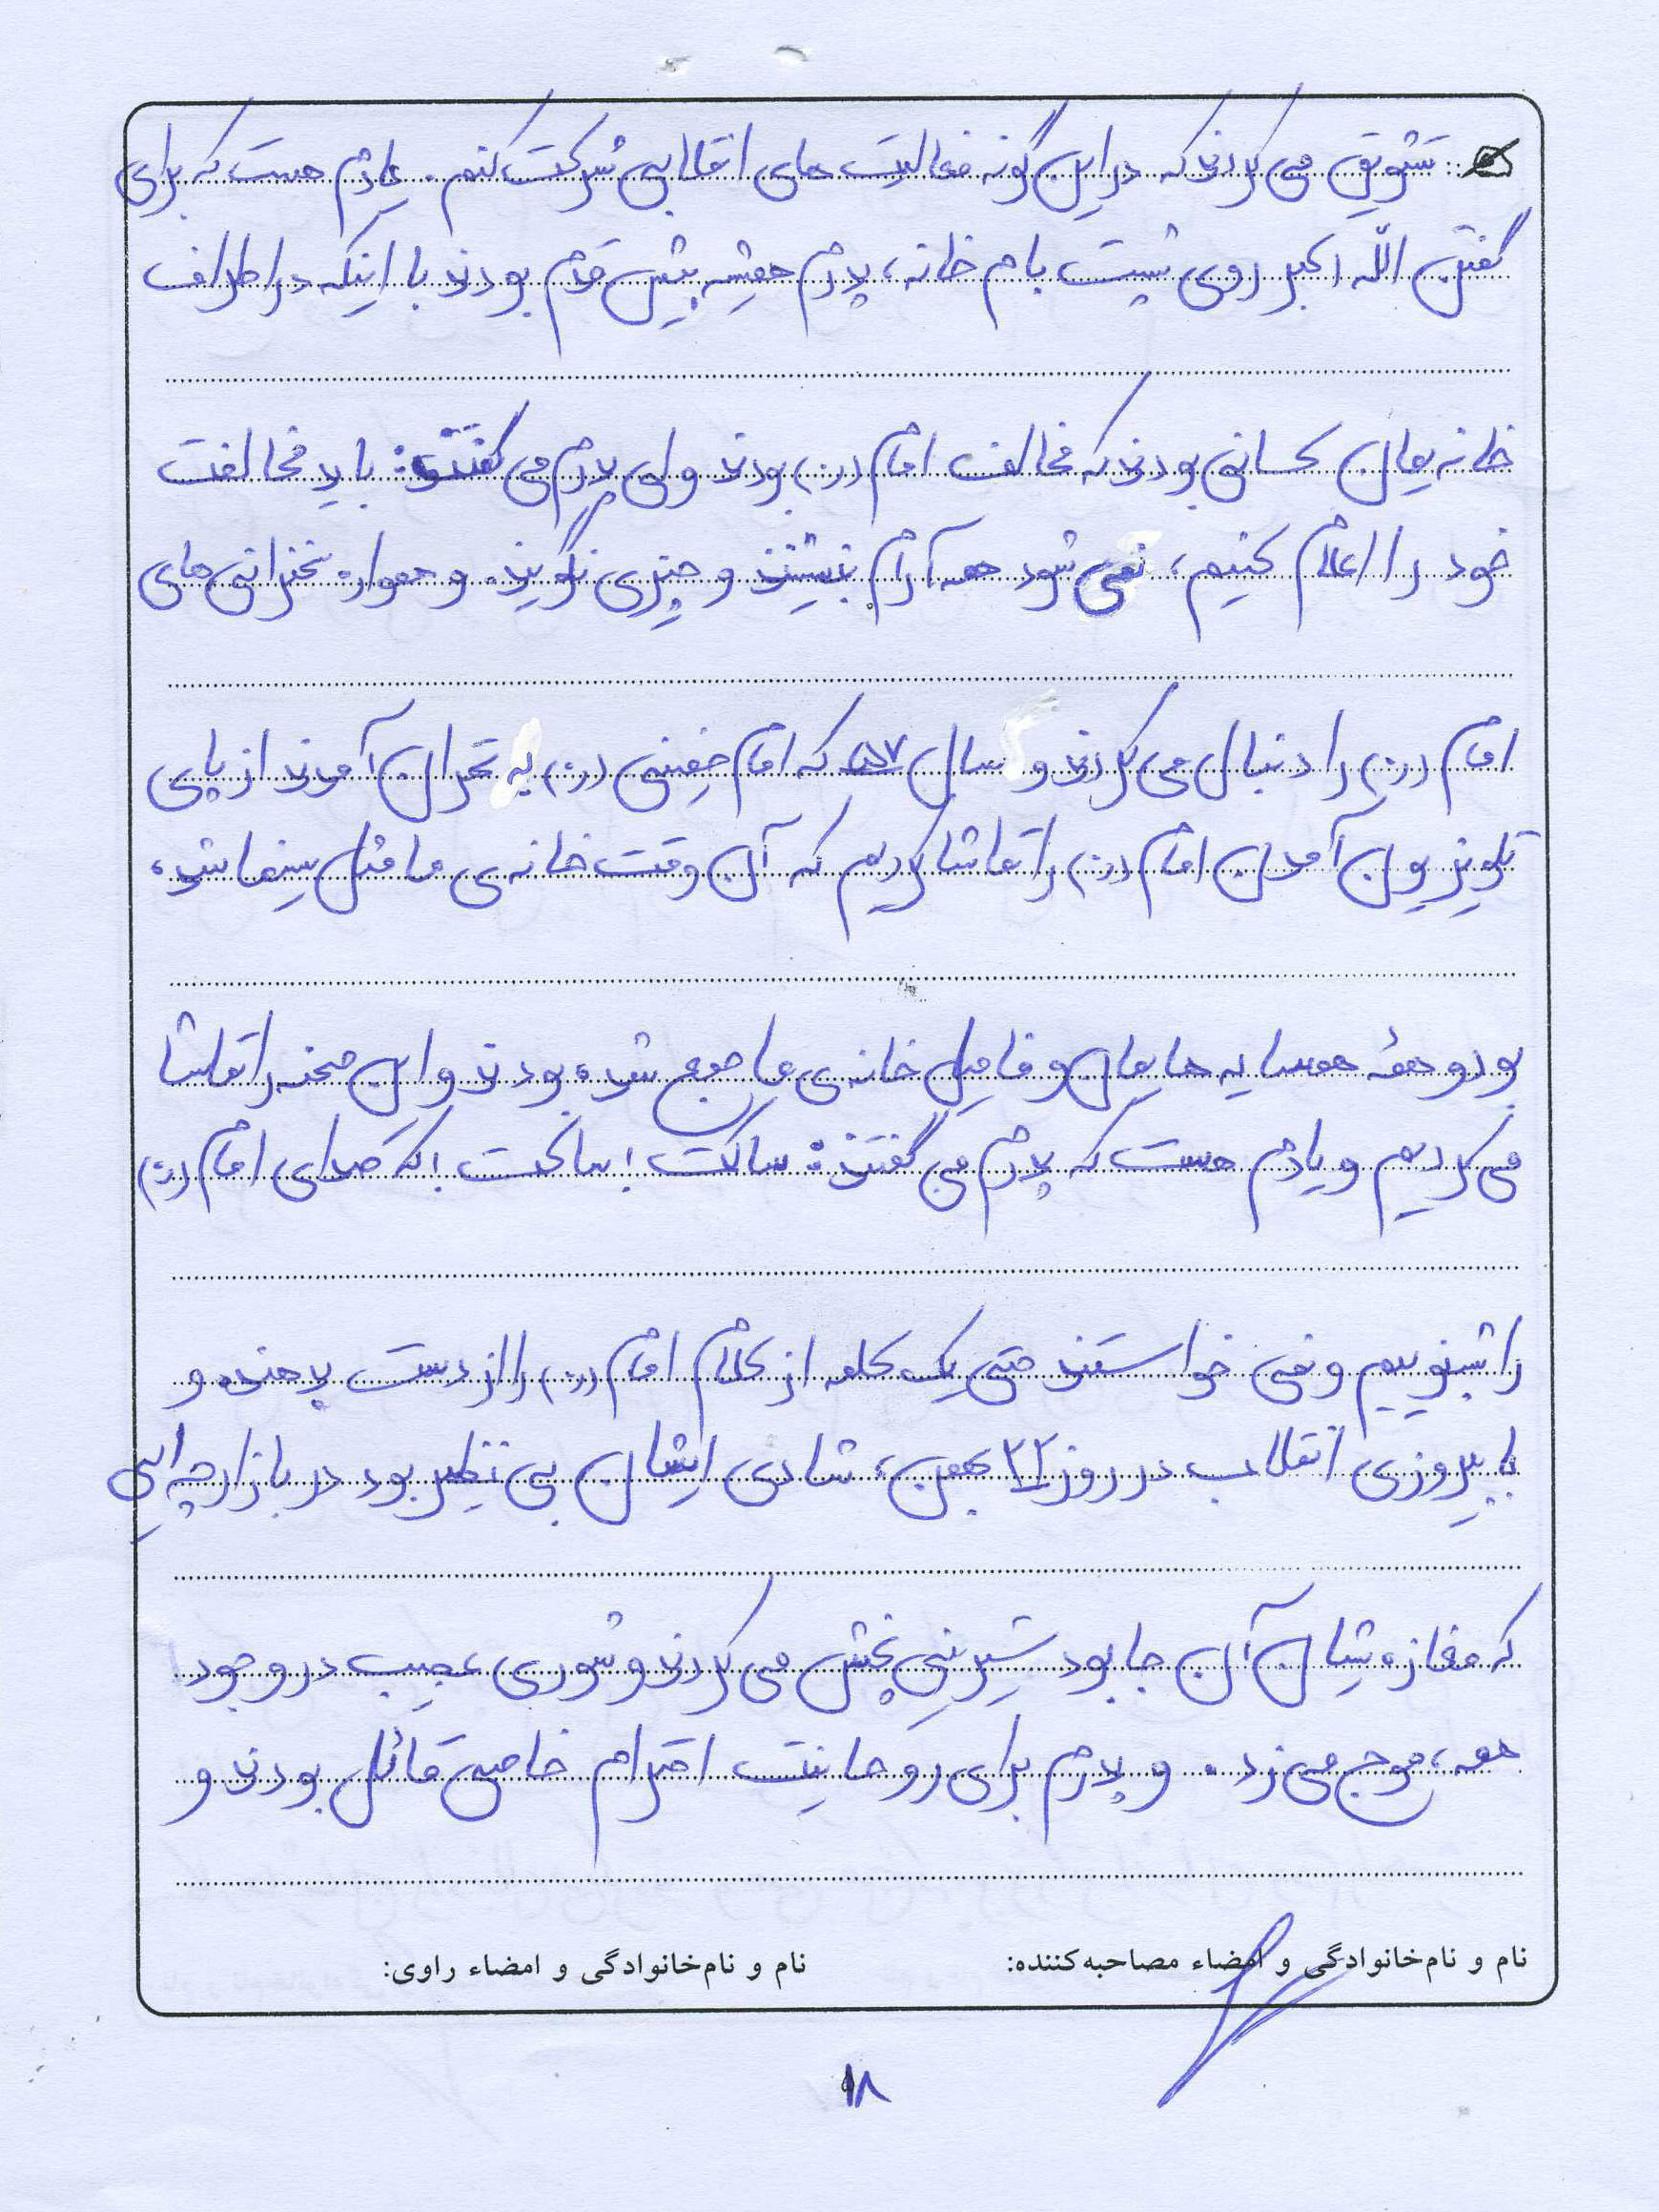 تشویق می کردند که در این گونه فعالیت های انقلابی شرکت کنم. یادم هست که برای
گفتن اللّه اکبر روی پشت بام خانه، پدرم همیشه پیش قدم بودند با اینکه در اطراف
خانه یمان کسانی بودند که مخالف امام (ره) بودند ولی پدرم می گفتند: باید مخالفت
خود را اعلام کنیم، نمی شود همه آرام بنشینند و چیزی نگویند. و همواره سخنرانی های
امام (ره) را دنبال می کردند و سال ۵۷ که امام خمینی (ره) به تهران آمدند از پای
تلویزیون آمدن امام (ره) را تماشا کردیم که آن وقت خانه ی ما مثل سینما شده
بود و همهٔ همسایه ها یمان و فامیل خانه ی ما جمع شده بودند و این صحنه را تماشا
می کردیم و یادم هست که پدرم می گفتند: ساکت! ساکت! که صدای امام (ره)
را بشنوییم و نمی خواستند حتی یک کلمه از کلام امام (ره) را از دست بدهند. و
با پیروزی انقلاب در روز ۲۲ بهمن، شادی ایشان بی نظیر بود در بازارچه ایی
که مغازه شان آن جا بود شیرینی پخش می کردند و شوری عجیب در وجود
همه، موج می زد. و پدرم برای روحانیت احترام خاصی قائل بودند و
نام و نام‌خانوادگی و امضاء مصاحبه‌کننده:
نام و نام‌خانوادگی و امضاء راوی:
۱۸